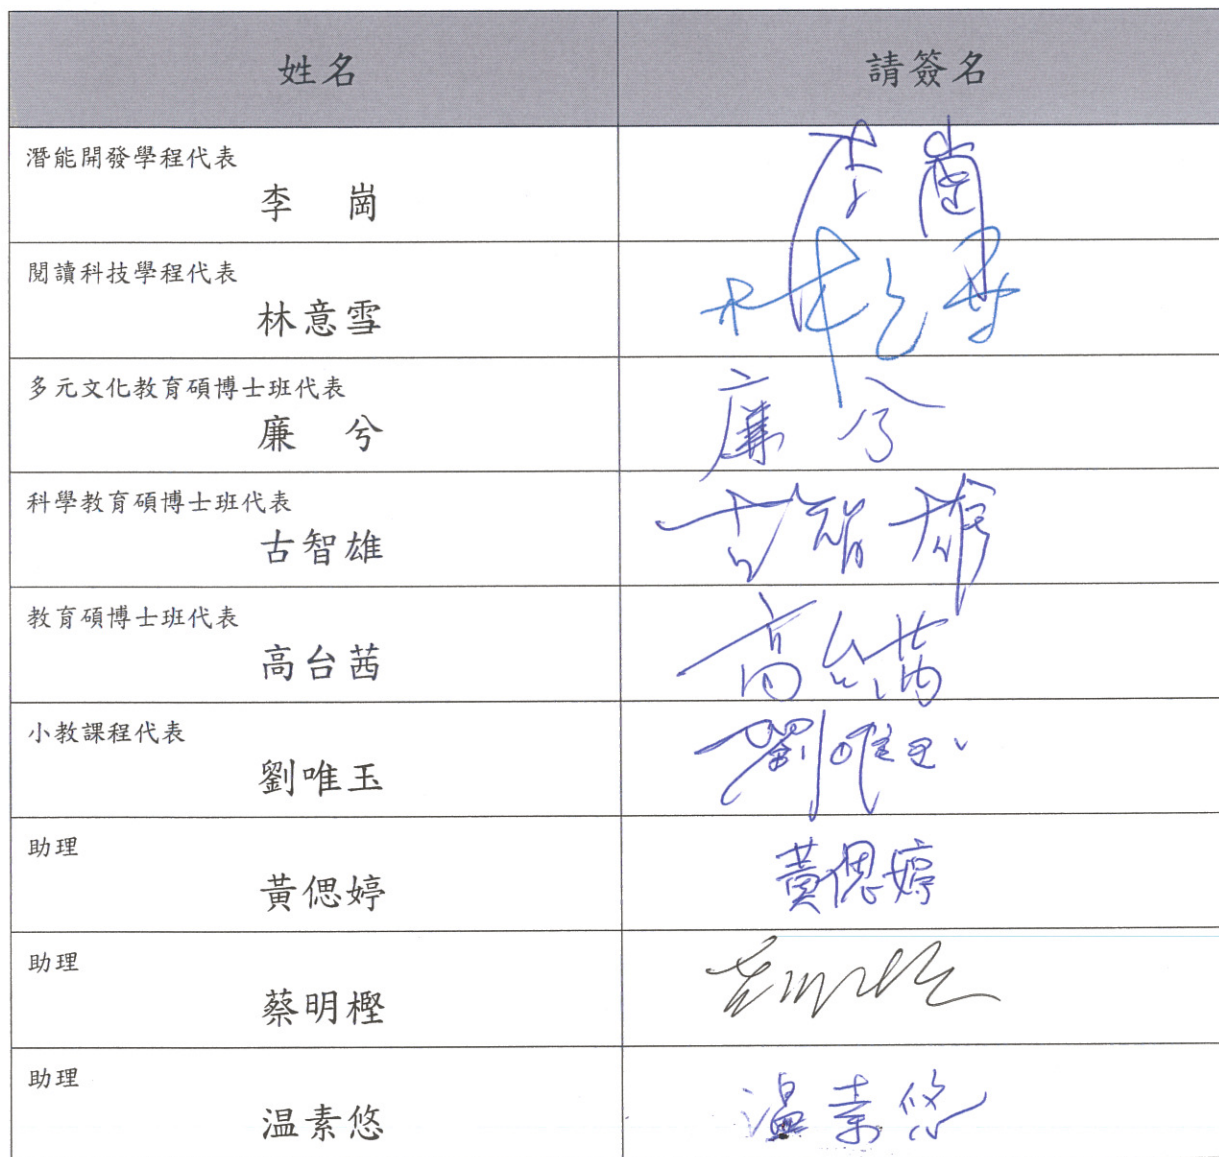 姓名 請簽名
潛能開發學程代表
李 崗 李崗
閱讀科技學程代表
林意雪 林意雪
多元文化教育碩博士班代表
廉 兮 廉兮
科學教育碩博士班代表
古智雄 古智雄
教育碩博士班代表
高台茜 高台茜
小教課程代表
劉唯玉 劉唯玉
助理
黃偲婷 黃偲婷
助理
蔡明樫
助理
温素悠 温素悠